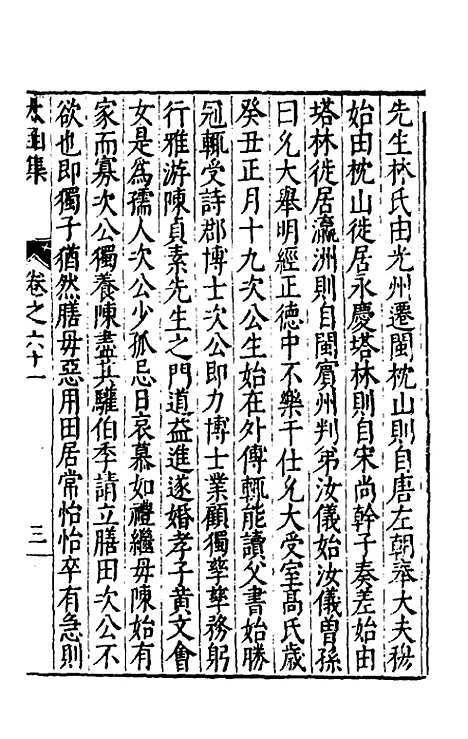 先生林氏由光州遷閩枕山則自唐左朝奉大夫穆
始由枕山徙居永慶塔林則自宋尚幹子奏差始由
塔林徙居瀛洲則自閩賓州判弟汝儀始汝儀曽孫
曰允大舉明經正德中不樂干仕允大受室髙氏歳
癸丑正月十九次公生始在外傅輒能讀父書始勝
冠輒受詩郡博士次公即力博士業顧獨孳孳務躬
行雅游陳貞素先生之門道益進遂婚孝子黄文㑹
女是為孺人次公少孤忌日哀慕如禮繼毋陳始有
家而寡次公獨養陳盡其驩伯季請立膳田次公不
欲也即獨子猶然膳毋惡用田居常怡怡卒有急則
太函集
卷之六十一
三